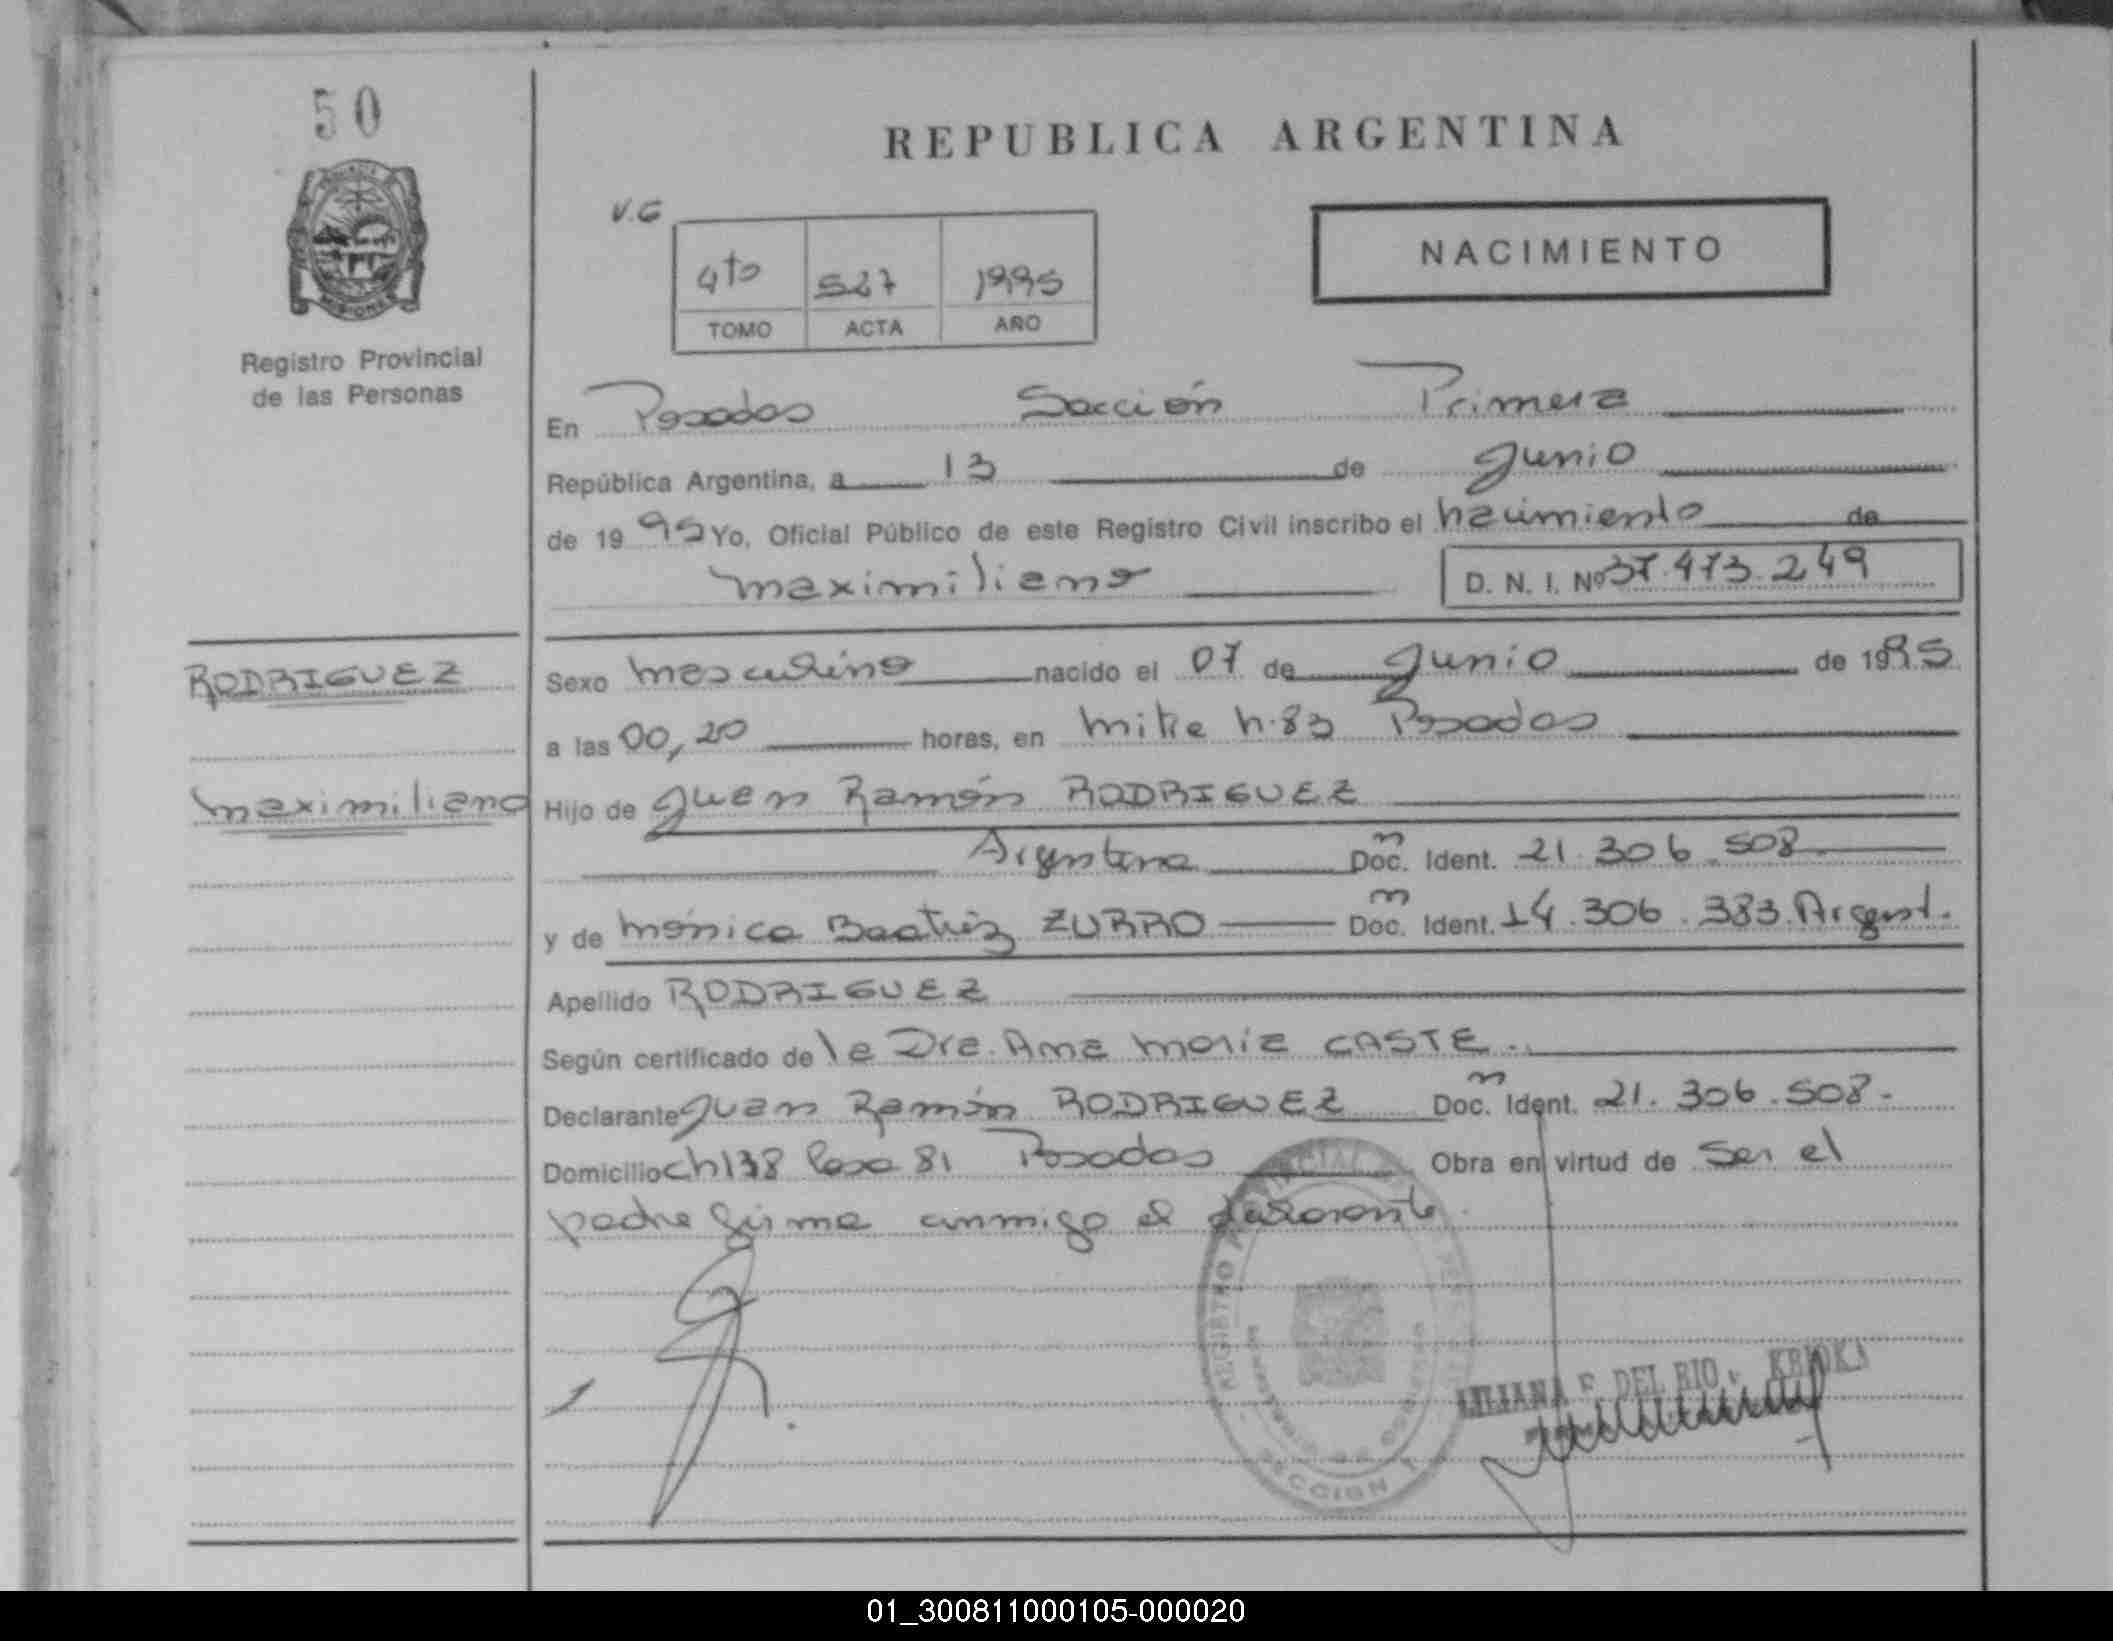 50
REPUBLICA ARGENTINA
V.G
4to 527 1995
TOMO ACTA AÑO
NACIMIENTO
Registro Provincial
de las Personas
En Posadas Sección Primera
República Argentina, a 13 de Junio
de 1995 Yo, Oficial Público de este Registro Civil inscribo el nacimiento de
Maximiliano D. N. I. Nº 37.473.249
RODRIGUEZ
Maximiliano
Sexo Masculino nacido el 07 de Junio de 1995
a las 00,20 horas, en Mitre n.83 Posadas
Hijo de Juan Ramón RODRIGUEZ
Argentina Doc. Ident. 21.306.508
y de Mónica Beatriz ZURRO Doc. Ident. 14.306.383. Argent.
Apellido RODRIGUEZ
Según certificado de la Dra. Ana Maria CASTE.
Declarante Juan Ramón RODRIGUEZ Doc. Ident. 21.306.508.
Domicilio Ch 138 Casa 81 Posadas Obra en virtud de Ser el
padre firma conmigo el declarante
REGISTRO
SECCION 1
LILIANA F. DEL RIO
01_300811000105-000020